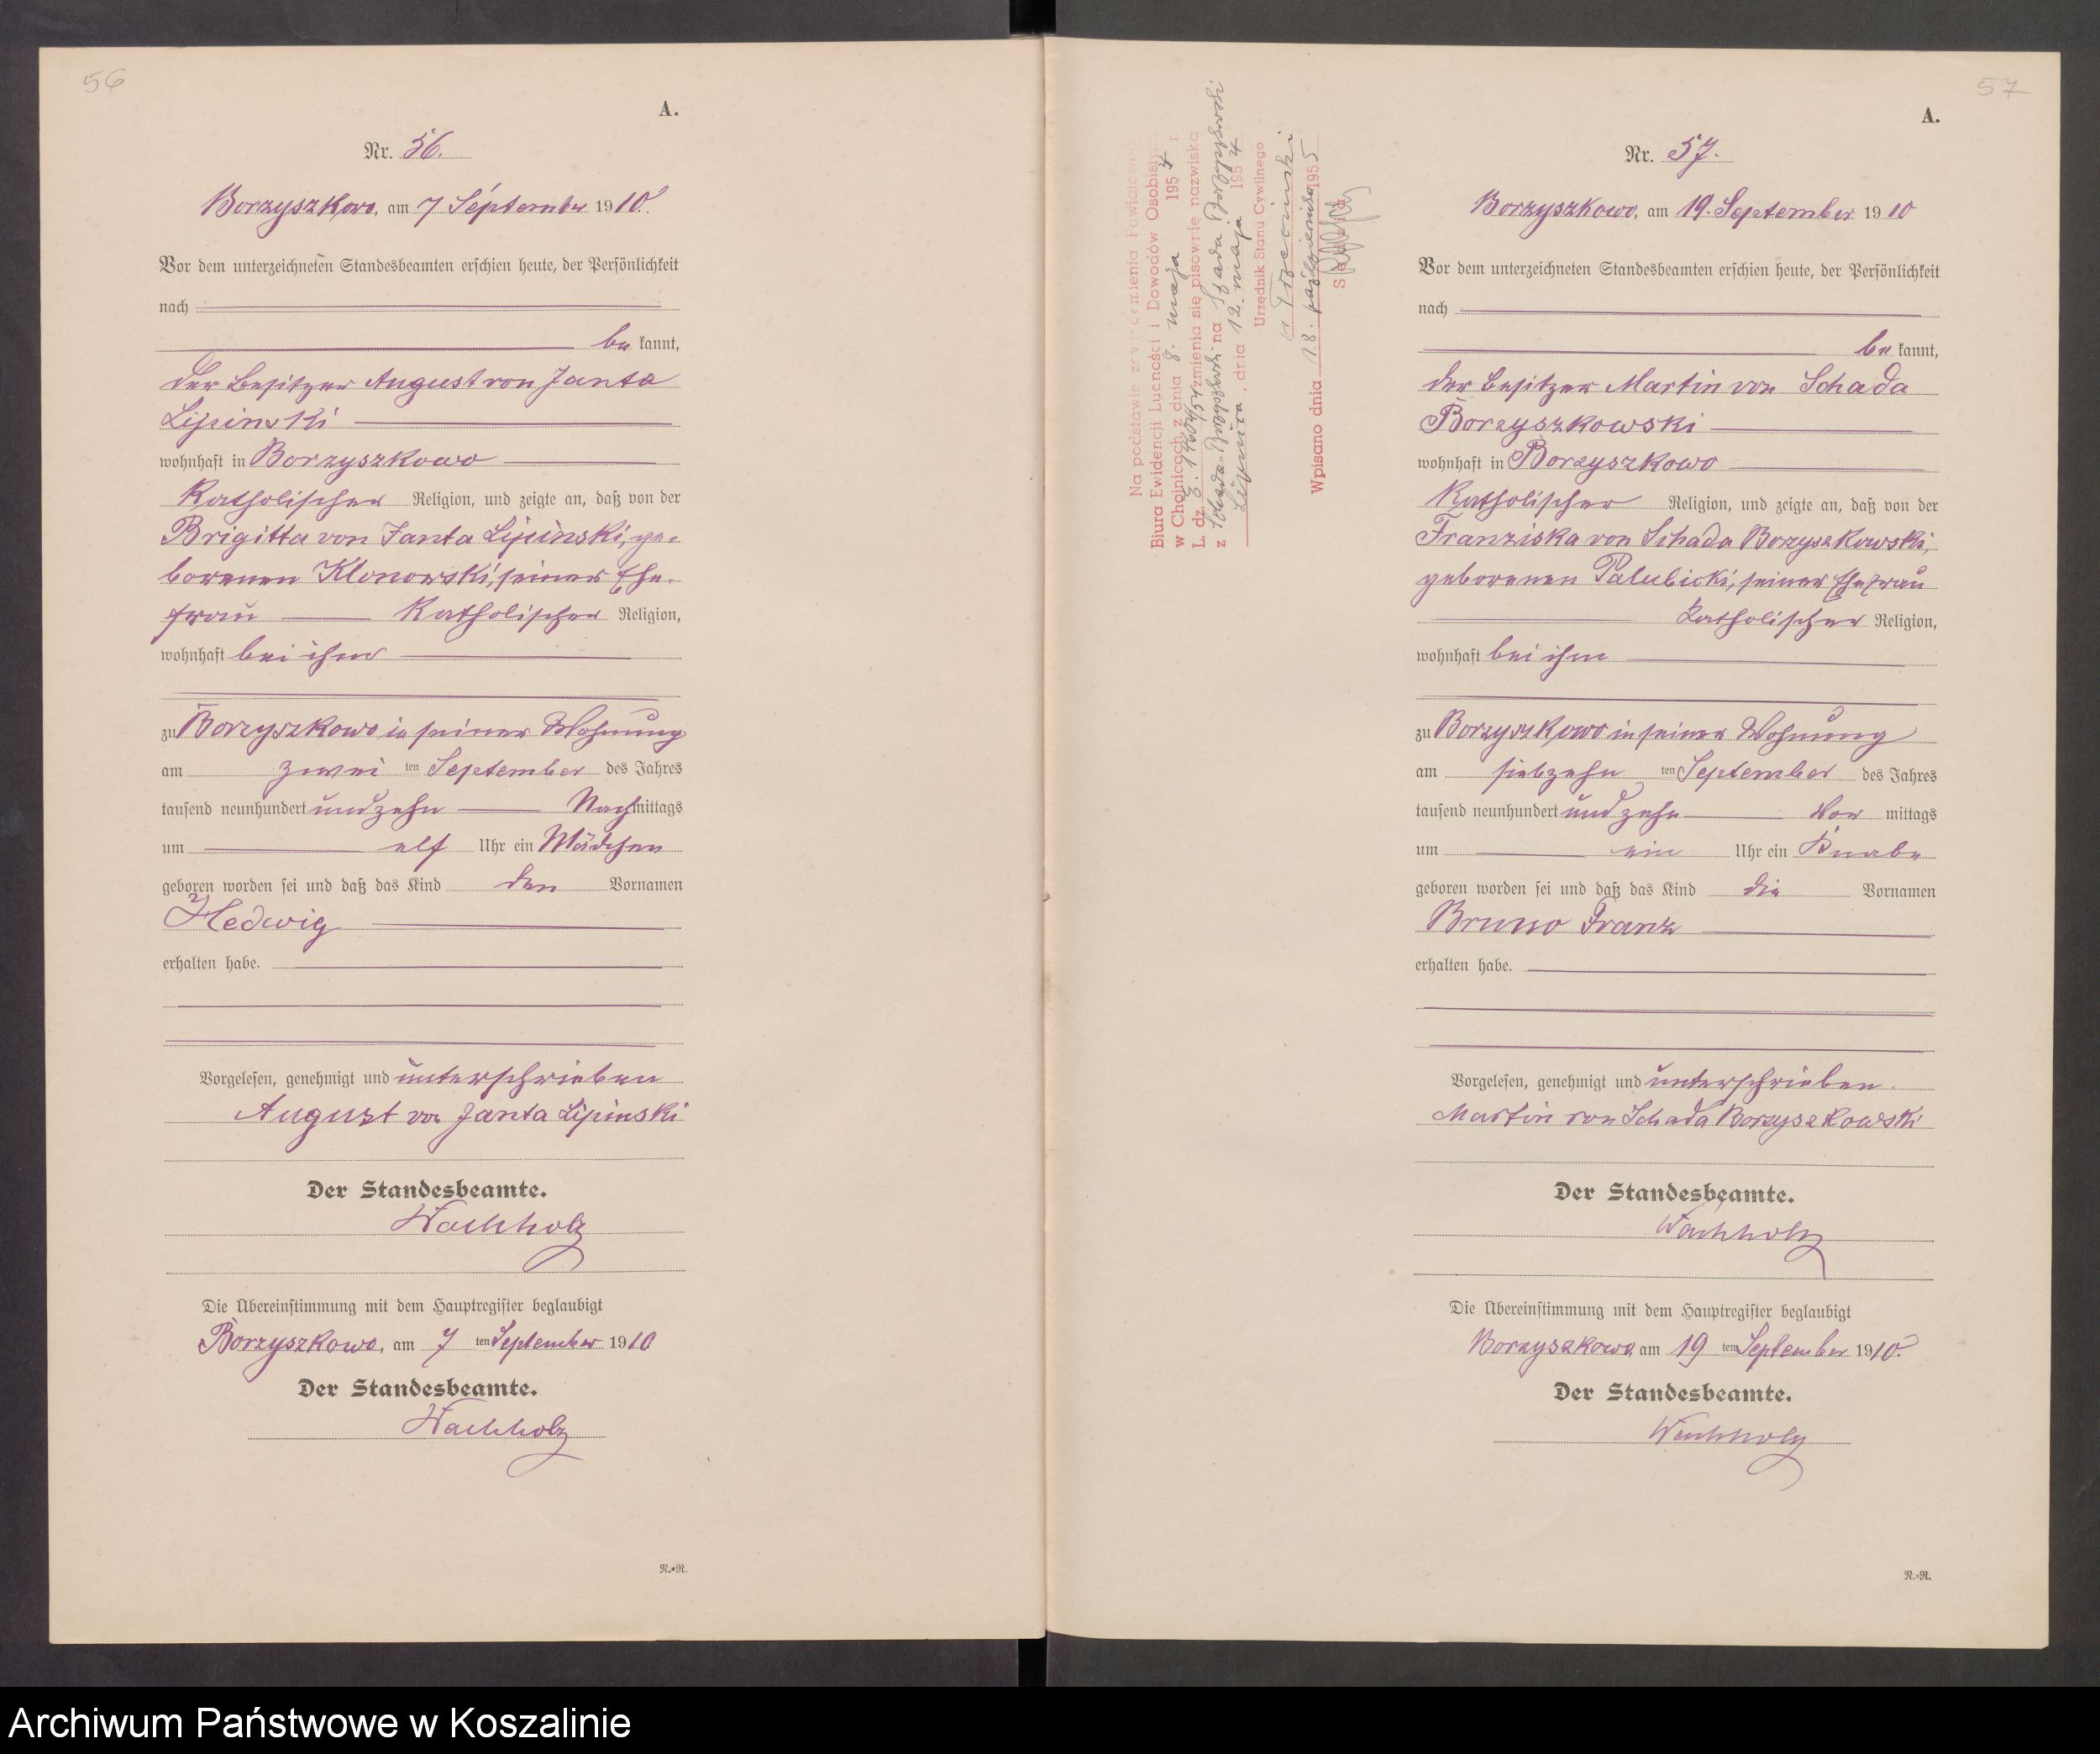 56
A.
Nr. 56.
Borzyszkowo, am 7 September 1910.
Vor dem unterzeichneten Standesbeamten erschien heute, der Persönlichkeit
nach
be kannt,
der Besitzer August von Janta
Lipinski
wohnhaft in Borzyszkowo
Katholischer Religion, und zeigte an, daß von der
Brigitta von Janta Lipinski, ge-
borenen Klonowski, seiner Ehe-
frau Katholischer Religion,
wohnhaft bei ihm
zu Borzyszkowo in seiner Wohnung
am zwei ten September des Jahres
tausend neunhundert und zehn Nachmittags
um elf Uhr ein Mädchen
geboren worden sei und daß das Kind den Vornamen
Hedwig
erhalten habe.
Vorgelesen, genehmigt und unterschrieben
August von Janta Lipinski
Der Standesbeamte.
Wachholz
Die Übereinstimmung mit dem Hauptregister beglaubigt
Borzyszkowo, am 7 ten September 1910
Der Standesbeamte.
Wachholz
N.=R.
57
A.
Nr. 57.
Borzyszkowo, am 19. September 1910
Vor dem unterzeichneten Standesbeamten erschien heute, der Persönlichkeit
nach
be kannt,
der Besitzer Martin von Schada
Borzyszkowski
wohnhaft in Borzyszkowo
Katholischer Religion, und zeigte an, daß von der
Franziska von Schada Borzyszkowski,
geborenen Palubicki, seiner Ehefrau
Katholischer Religion,
wohnhaft bei ihm
zu Borzyszkowo in seiner Wohnung
am siebzehn ten September des Jahres
tausend neunhundert und zehn Vor mittags
um ein Uhr ein Knabe
geboren worden sei und daß das Kind die Vornamen
Bruno Franz
erhalten habe.
Vorgelesen, genehmigt und unterschrieben.
Martin von Schada Borzyszkowski
Der Standesbeamte.
Wachholz
Die Übereinstimmung mit dem Hauptregister beglaubigt
Borzyszkowo, am 19 ten September 1910.
Der Standesbeamte.
Wachholz
N.=R.
Na podstawie zawiadomienia Powiatowego
Biura Ewidencji Ludności i Dowodów Osobistych
w Chojnicach z dnia 8. maja 1954 r.
L. dz. zmienia się pisownię nazwiska
z Schada-Borzyszkowski na Szada Borzyszkowski
Lipnica, dnia 12. maja 1954
Urzędnik Stanu Cywilnego
Wpisano dnia 18. października 1955
Archiwum Państwowe w Koszalinie